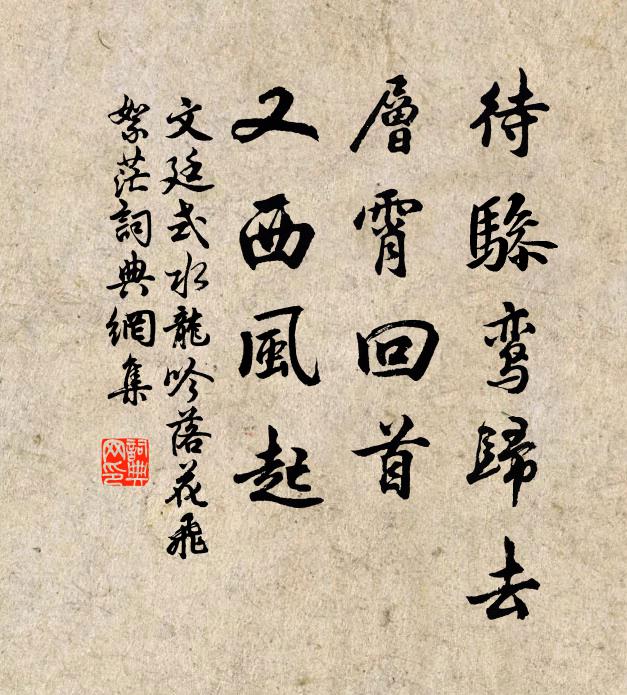 待驂鸾歸去
層霄回首
又西風起
文廷式水龍吟落花飛
絮茫詞典網集
詞典网印